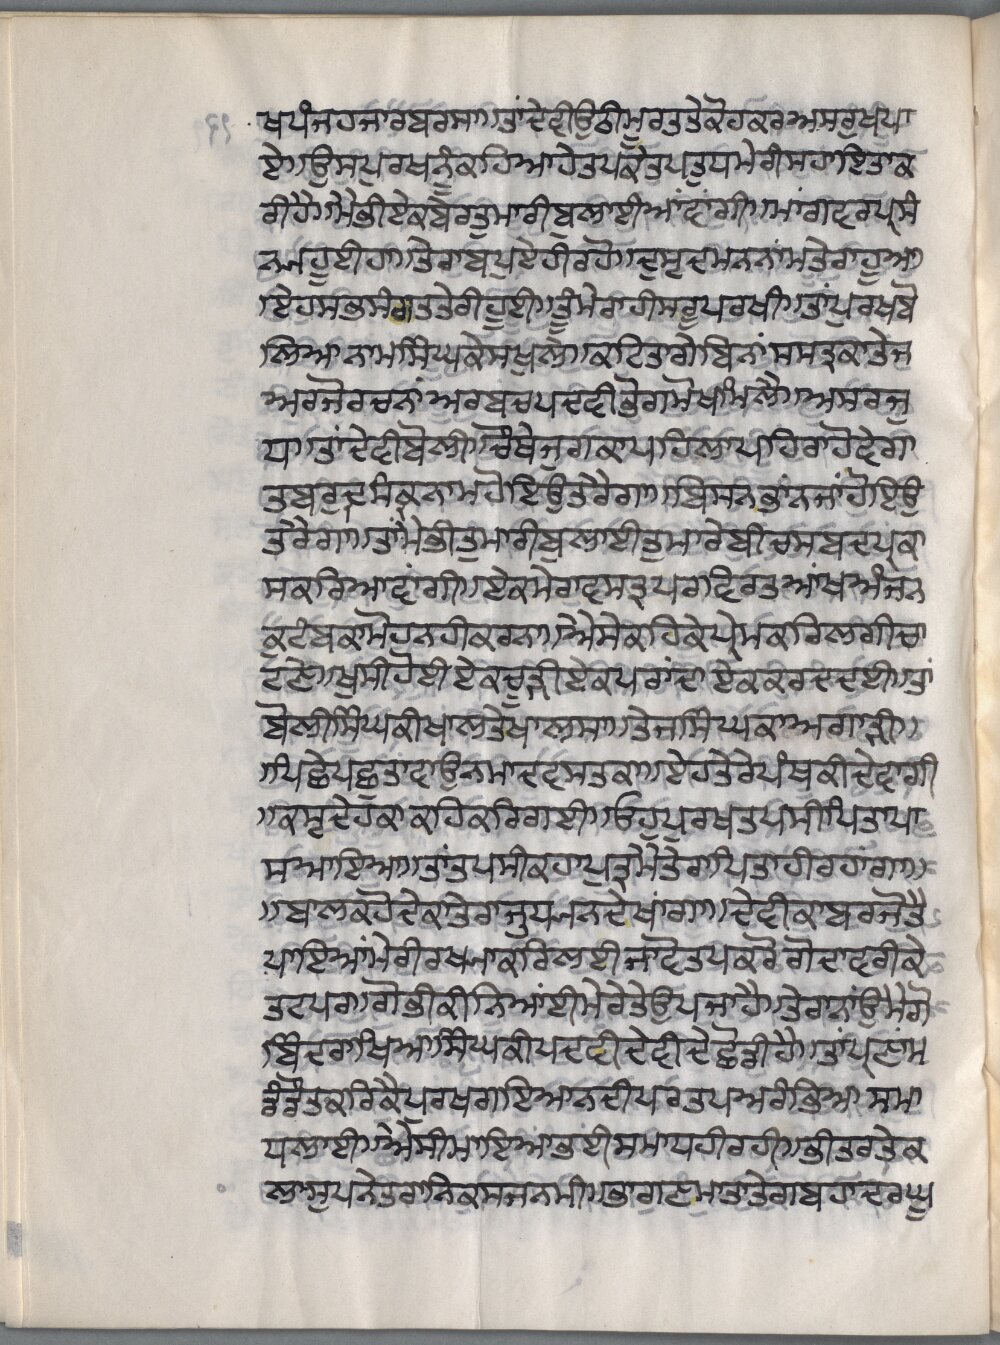 ਖਪੰਜਹਜਾਰਬਰਸ॥ਤਾਂਦੇਵੀਉਠੀਮੂਰਤਤੇਕੌਹਕਰਅਸਰੁਖਪਾ
ਏ॥ਉਸਪੁਰਖਨੂੰਕਹਿਆਹੇਤਪਕੈਤਪਤੁਧਮੇਰੀਸਹਾਇਤਾਕ
ਰੀਹੈ॥ਮੈਭੀਏਕਬੇਰਤੁਮਾਰੀਬੁਲਾਈਆਂਦਾਂਗੀ॥ਮਾਂਗਵਰਪ੍ਰਸੰ
ਨਮਹੂਈਹਾ॥ਤੇਰਾਬਪੁਏਹੀਰਹੋ॥ਦੁਸ੍ਰਦਮਨਨਾਂਮਤੇਰਾਹੂਆ
॥ਏਹਸਭਸੰਗਤਤੇਰੀਹੂਈ॥ਤੂੰਮੇਰਾਹੀਸਰੂਪਰਖੀ॥ਤਾਂਪੁਰਖਬੋ
ਲਿਆਨਾਮਸਿੰਘਕੇਸਖੁਲੇ॥ਕਟਿਤਾਗੇਬਿਨਾਂਸਸਤ੍ਰਕਾਤੇਜ
ਅਰਜੋਰਚਨਾਂਅਰਬਚਪਦਵੀਤੋਗਮੋਖਾਂਮਲੈ॥ਅਸਰਜੁ
ਧਾ॥ਤਾਂਦੇਵੀਬੋਲੀ॥ਚੌਥੇਜੁਗਕਾਪਹਿਲਾਪਹਿਰਾਹੋਵੇਗਾ
ਤਬਰੁਦ੍ਰਸਿੰਕ੍ਰਨਾਮਹੋਇਉਤੇਰੈਗਾ॥ਬਿਸਨਭਾਂਨਜਾਂਹੋਇਉ
ਤੇਰੈਗਾ॥ਤਾਂਮੈਭੀਤੁਮਾਰੀਬੁਲਾਈਤੁਮਾਰੇਬੀਚਸਬਦਪ੍ਰਕਾ
ਸਕਰਿਆਵਾਂਗੀ॥ਏਕਮੇਰਾਵਸਤ੍ਰਪਰਾਵਿਰਤਆਂਖਅੰਜਨ
ਕੁਟੰਬਕਾਮੋਹਨਹੀਕਰਨਾ॥ਐਸੇਕਹਿਕੇਪ੍ਰੇਮਕਰਿਲਗੀਚਾ
ਟਣੇ॥ਖੁਸੀਹੋਈਏਕਚੂੜੀਏਕਪਰਾਂਦਾਏਕਕਰਦਦਈ॥ਤਾਂ
ਬੋਲੀਸਿੰਘਕੀਖਾਲਤੇਖਾਲਸਾ॥ਤੇਜਸਿੰਘਕਾਅਗਾੜੀ॥
॥ਪਿਛੈਪਛੁਤਾਂਵਾਉਨਮਾਦਵਸਤਕਾ॥ਏਹਤੇਰੇਪੰਥਕੀਦੇਵਾਗੀ
॥ਕਸੂਦੇਹਕਾਕਹਿਕਰਿਗਈ॥ਓਹੁਪੁਰਖਤਪਸੀਪਿਤਾਪਾ
ਸਆਇਆ॥ਤਾਂਤਪਸੀਕਹਾਪੁਤ੍ਰਮੈਤੇਰਾਪਿਤਾਹੀਰਹਾਂਗਾ॥
॥ਬਾਲਕਹੋਦੇਕਾਤੇਰਾਜੁਪਮਨਦੇਖਾਂਗਾ॥ਦੇਵੀਕਾਬਰਜੋਤੈ
ਪਾਇਆਂਮੇਰੀਰਖਸਾਕਰਿਲਈਜਾਂਦੋਤਪਕਰੋਗੋਦਾਵਰੀਕੇ
ਤਟਪਰ॥ਗੋਭੀਕੀਨਿਆਂਈਮੇਰੇਤੇਉਪਜਾਹੈ॥ਤੇਰਾਨਾਂਉਮੈਗੋ
ਬਿੰਦਰਾਖਿਆ॥ਸਿੰਘਕੀਪਦਵੀਦੇਵੀਦੇਛੋਡੀਹੈ॥ਤਾਂਪ੍ਰਣਾਂਮ
ਡੰਡੌਤਕਰਿਕੈਪੁਰਖਗਇਆਨਦੀਪਰਤਪਅਰੰਭਿਆਸਮਾ
ਧਲਾਈ॥ਐਸੀਮਾਇਆਭਈਸਮਾਧਹੀਰਹੀ॥ਭੀਤਰਤੇਕ
ਲਾਸੁਪਨੇਤਰਾਨਿਕਸਜਨਮੀ॥ਭਾਗਣਮਾਤਾਤੇਗਬਹਾਦਰਘੁ